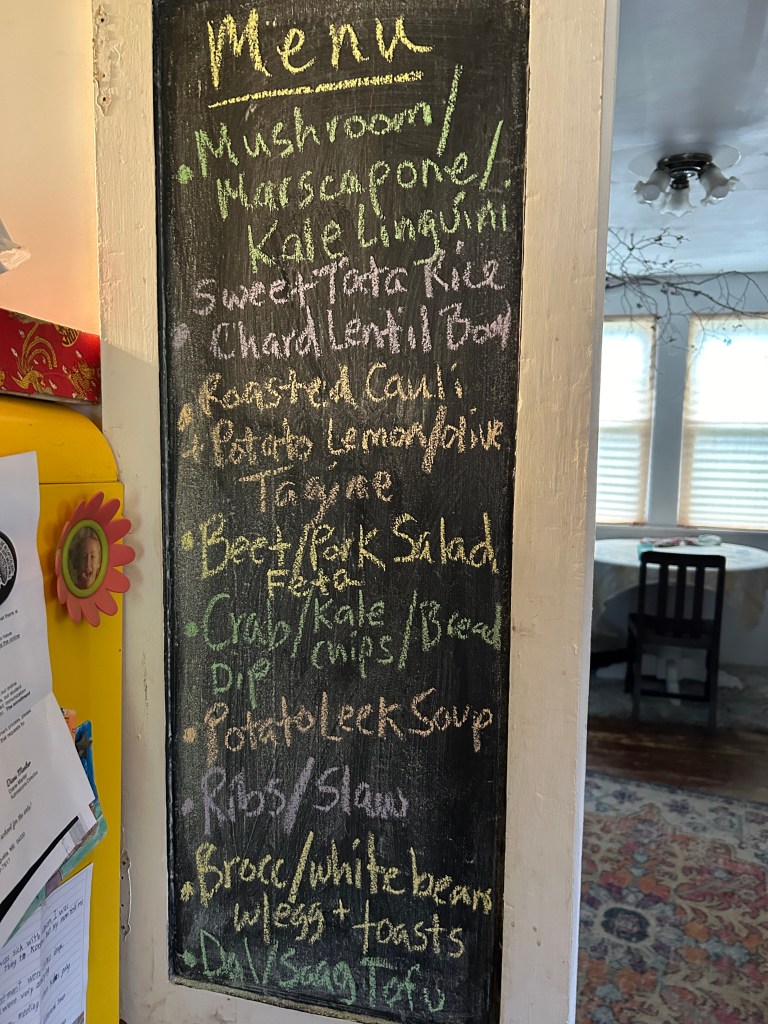 Menu
• Mushroom/
Marscapone/
Kale Linguini
Sweet Tata Rice
• Chard Lentil Bowl
Roasted Cauli
Potato Lemon/olive
Tagine
• Beet/Pork Salad
Feta
• Crab/Kale /Bread
Dip chips
• Potato Leek Soup
• Ribs/Slaw
• Brocc/white bean
w/egg + toasts
• Dal/Saag Tofu